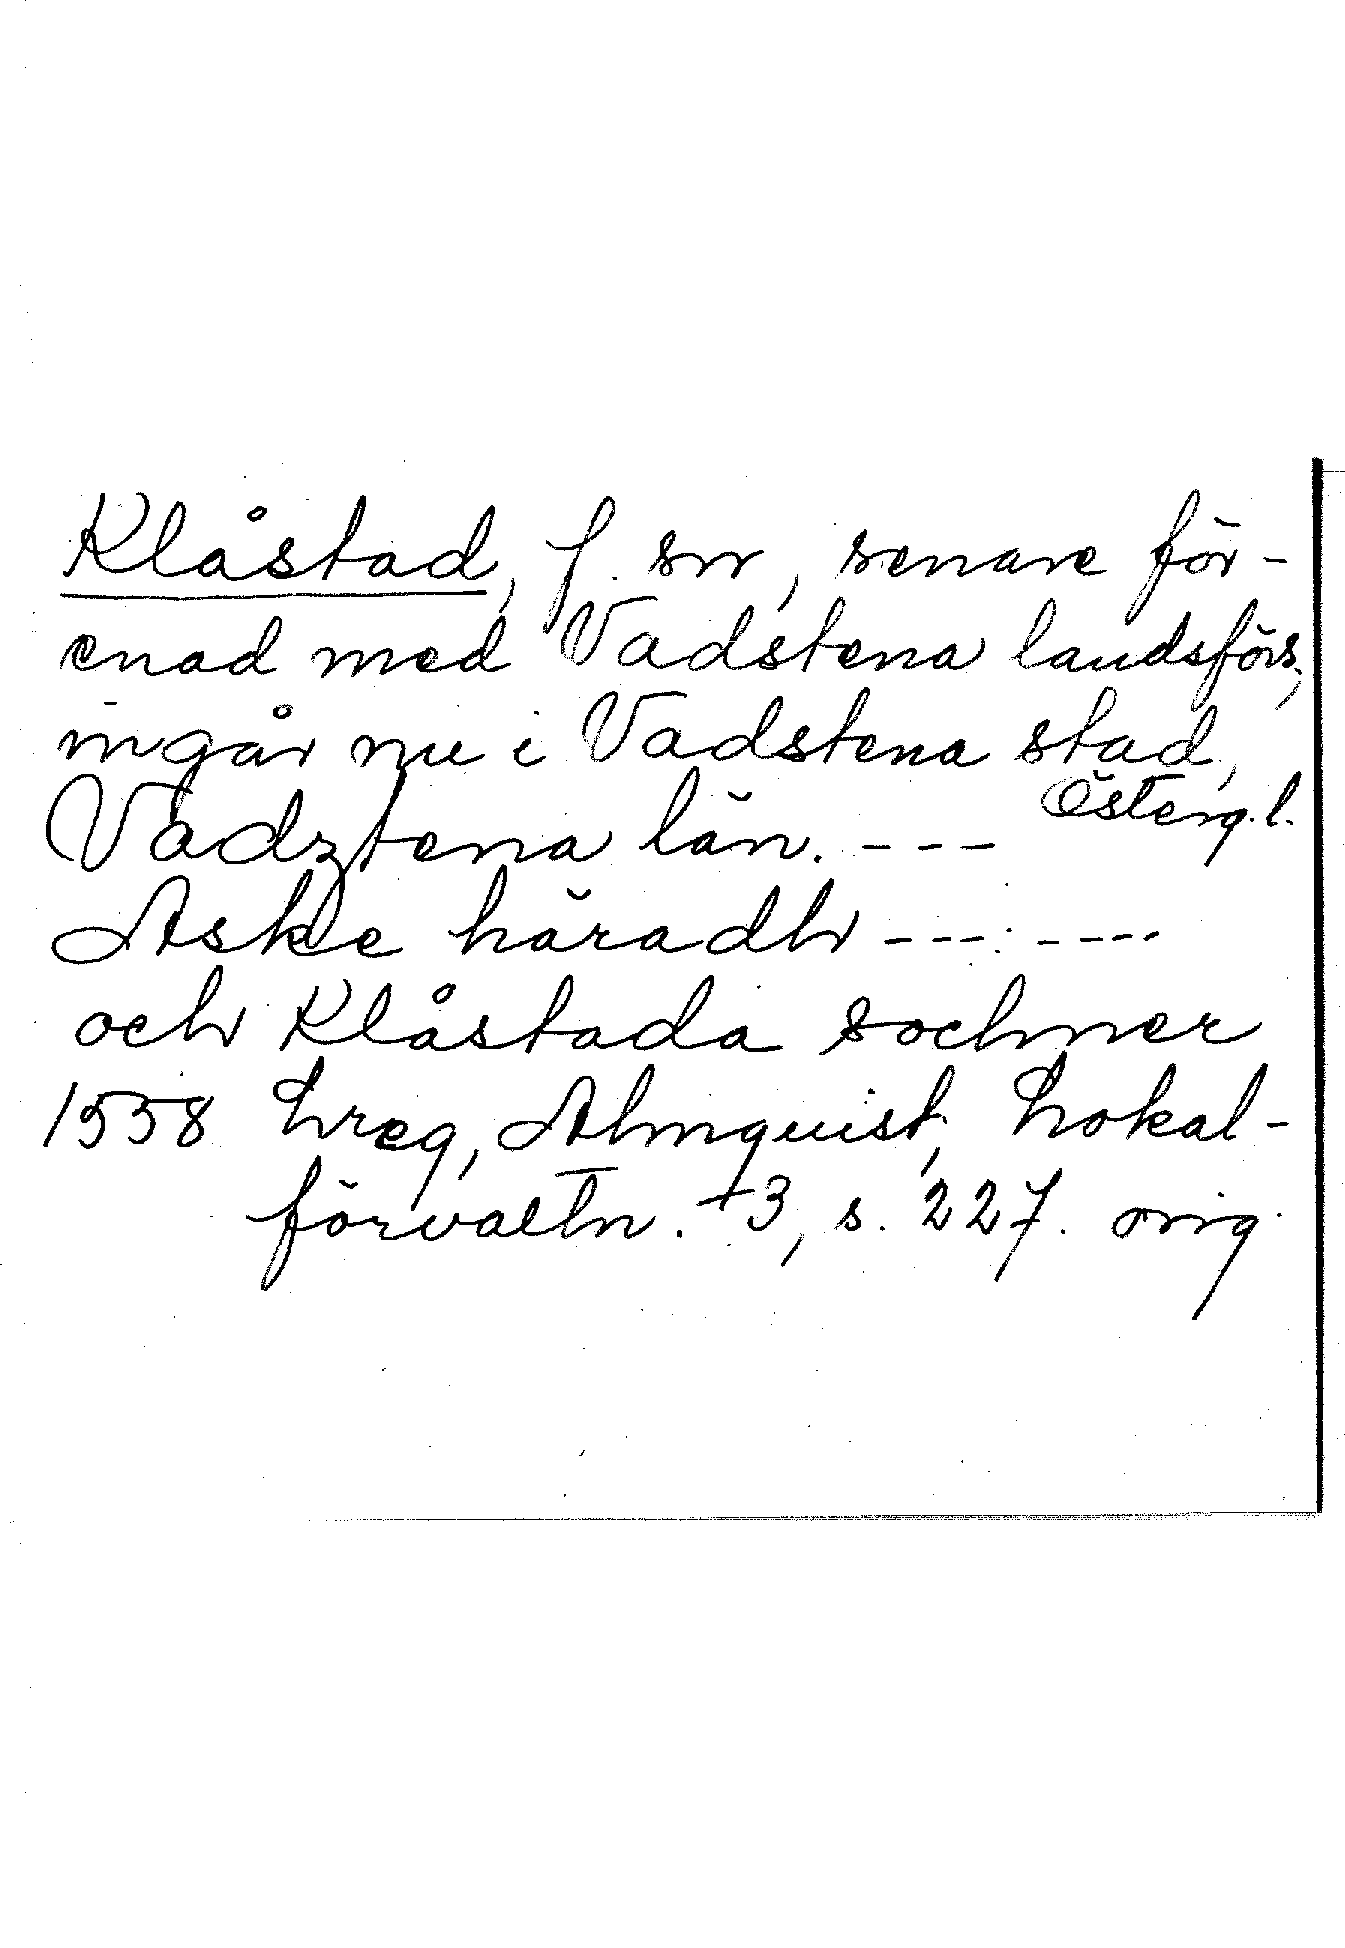 Klåstad, f. sn, senare för-
enad med Vadstena landsförs;
ingår nu i Vadstena stad,
Österg. l.
Vadztena län. ---
Aske häradh --- ----
och Klåstada sochner
1558 Lreg, Almquist, Lokal-
förvaltn. +3, s. 227. orig.